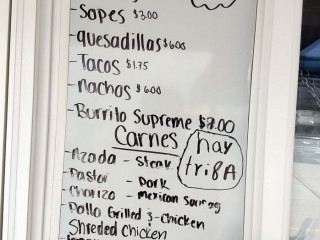 - Sopes $3.00
- quesadillas $6.00
- Tacos $1.75
- nachos $6.00
- Burrito Supreme $7.00
Carnes
hay
tripA
- Azada - Steak
- Pastor - Pork
- Chorizo - Mexican
- Pollo Grilled 3-Chicken
Shreded Chicken